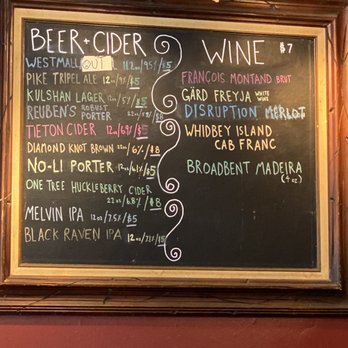 BEER + CIDER
WESTMALLE OUT! 11.2oz/9.5%/$5
PIKE TRIPEL ALE 12oz/9%/$5
KULSHAN LAGER 12oz/5%/$5
REUBEN'S ROBUST PORTER 22oz/5.9%/$8
TIETON CIDER 12oz/6.9%/$5
DIAMOND KNOT BROWN 22oz/6%/$8
NO-LI PORTER 12oz/6.1%/$5
ONE TREE HUCKLEBERRY CIDER
22oz/6.8%/$8
MELVIN IPA 12oz/7.5%/$5
BLACK RAVEN IPA 12oz/7.1%/$5
WINE $7
FRANCOIS MONTAND BRUT
GÅRD FREYJA WHITE WINE
DISRUPTION MERLOT
WHIDBEY ISLAND
CAB FRANC
BROADBENT MADEIRA
(4oz)